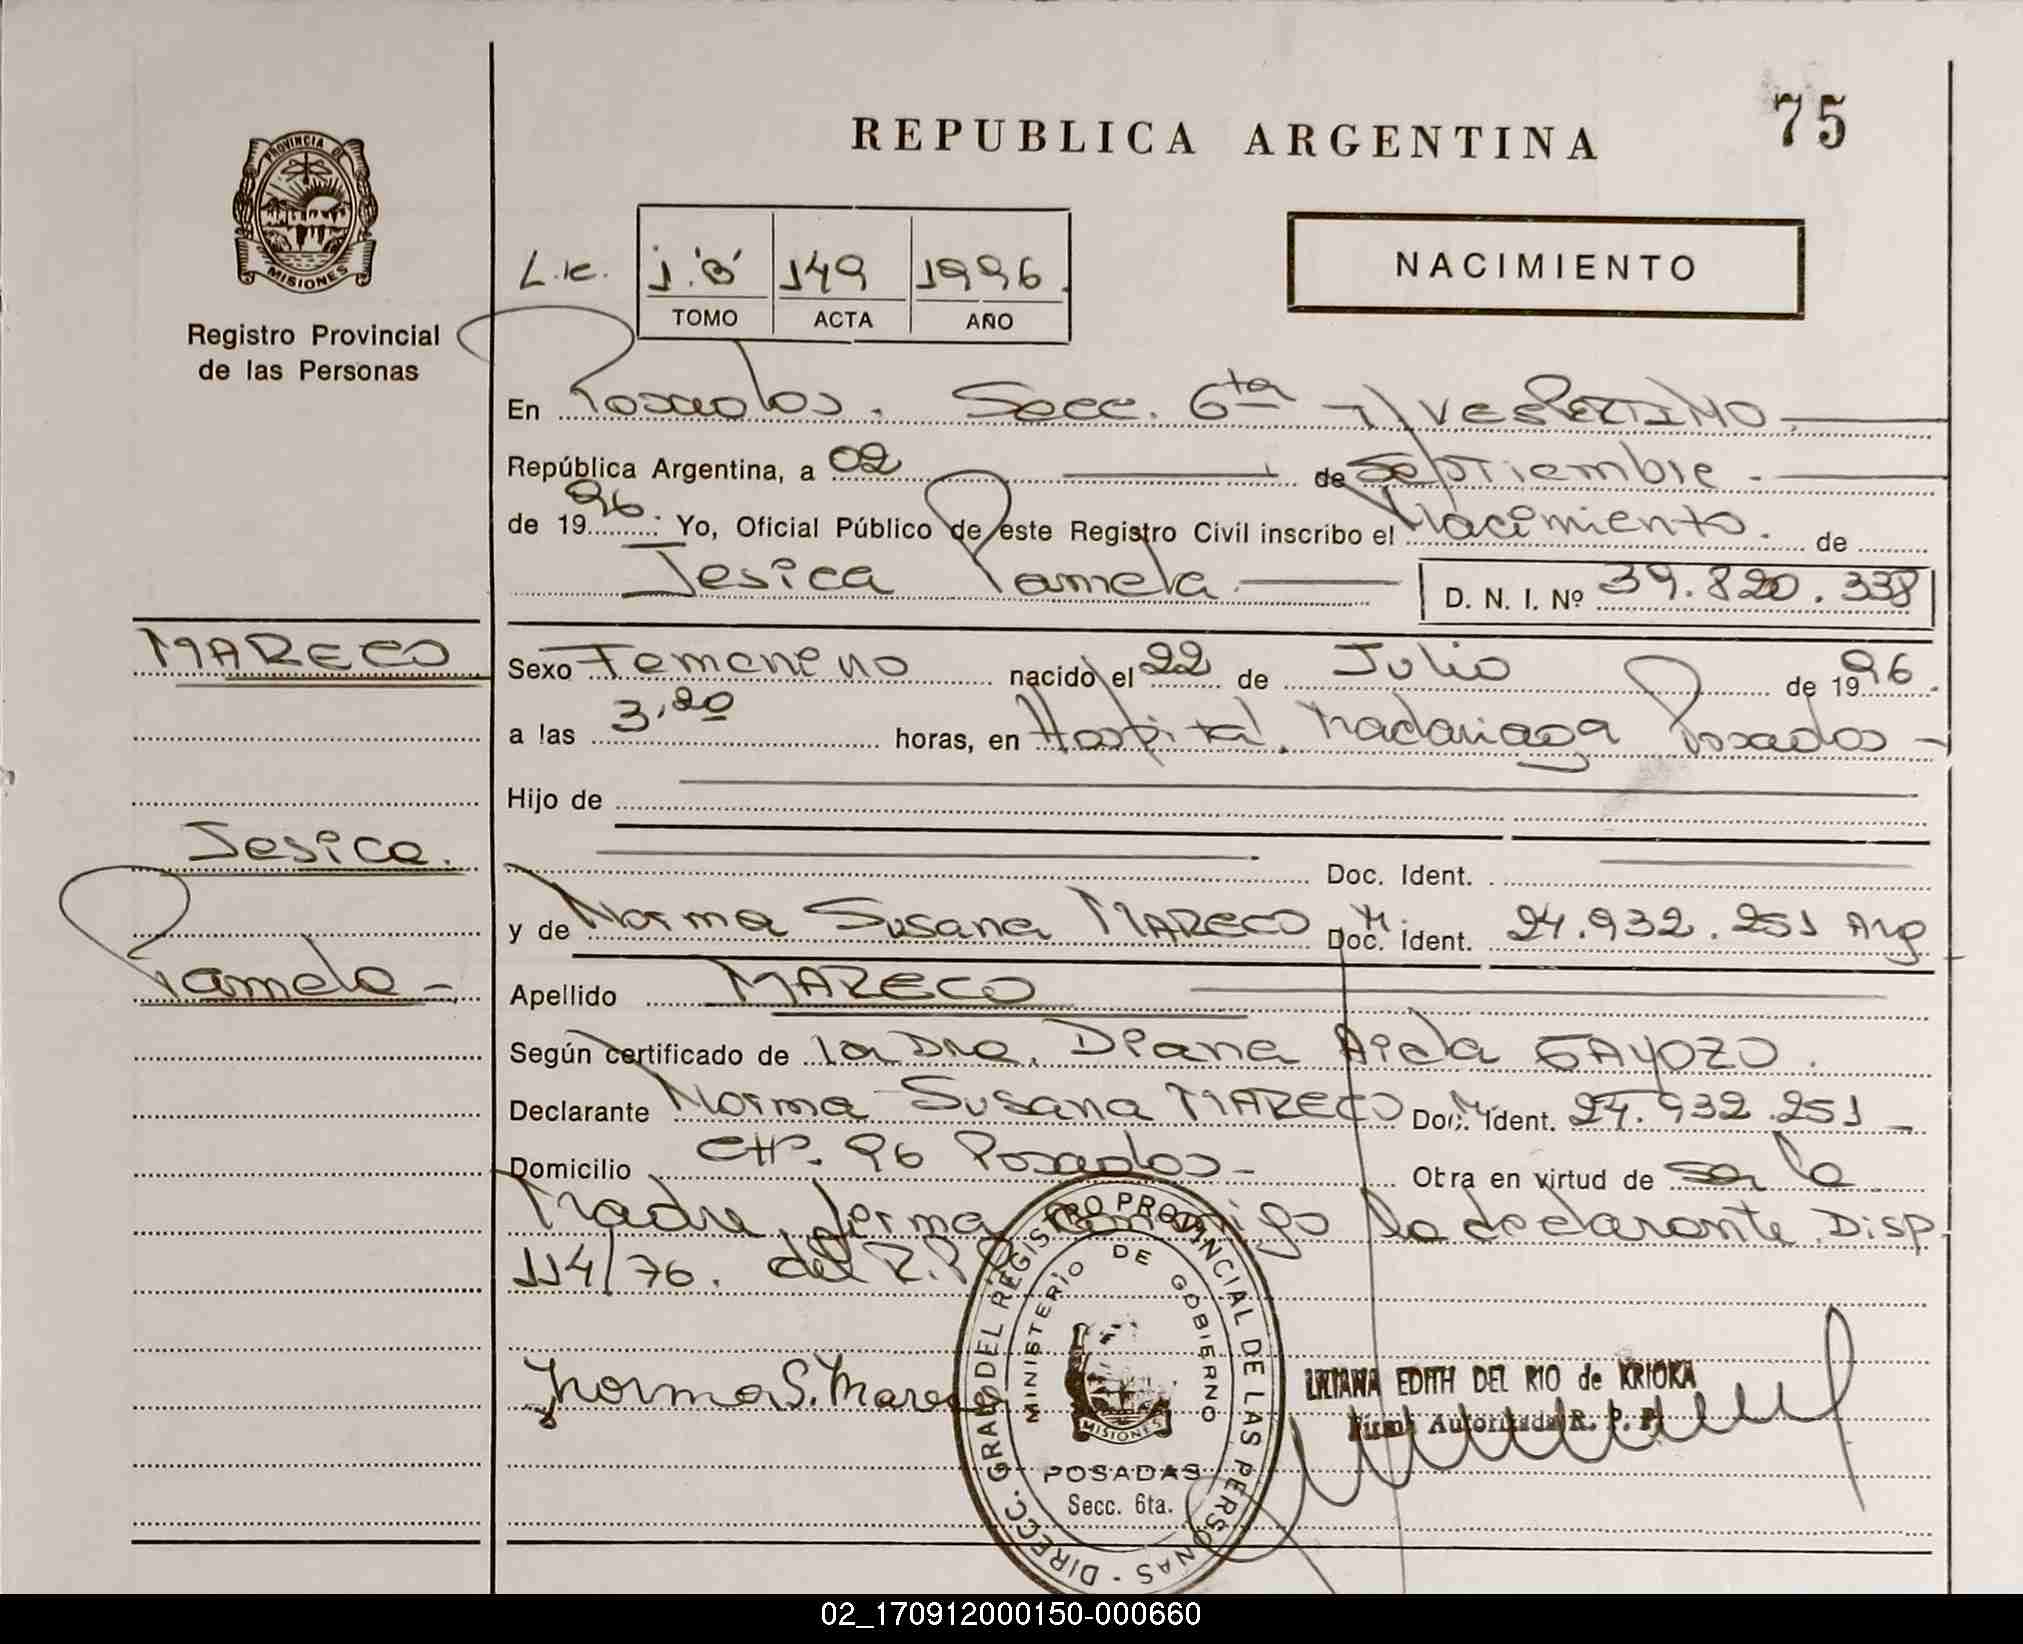 75
REPUBLICA ARGENTINA
PROVINCIA DE
MISIONES
Registro Provincial
de las Personas
NACIMIENTO
1.'B' 149 1996.
TOMO ACTA AÑO
En Posadas. Secc. 6ta VESPERTINO
República Argentina, a 02 de Septiembre.
de 1996. Yo, Oficial Público de este Registro Civil inscribo el Nacimiento. de
Jesica Pamela D. N. I. Nº 39.820.338
MARECO
Sexo Femenino nacido el 22 de Julio de 1996.
a las 3,20 horas, en Hospital. Madariaga Posadas
Hijo de
Jesica.
Pamela
Doc. Ident.
y de Norma Susana MARECO Doc. Ident. 24.932.251 Arg
Apellido MARECO
Según certificado de la Dra. Diana Aida GAYOZO.
Declarante Norma Susana MARECO Doc. Ident. 24.932.251
Domicilio CH. 96 Posadas Obra en virtud de ser la
Madre, firma conmigo la declarante. Disp.
114/76. del R.P.P
Norma S. Mareco
LILIANA EDITH DEL RIO de KRIOKA
Firma Autorizada R. P. P.
DIRECC. GRAL. DEL REGISTRO PROVINCIAL DE LAS PERSONAS - DIRECC.
MINISTERIO DE GOBIERNO
MISIONES
POSADAS
Secc. 6ta.
02_170912000150-000660